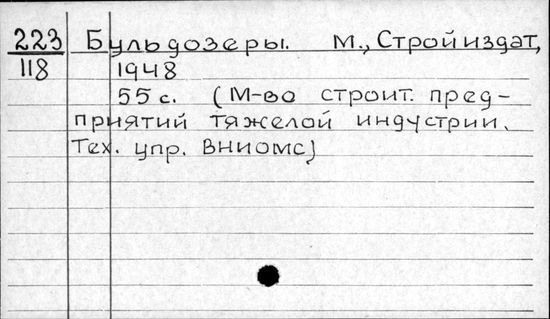 223 Бульдозеры. М., Стройиздат,
118 1948
55 с. (М-во строит. пред-
приятий тяжелой индустрии.
Тех. упр. ВНИОМС)